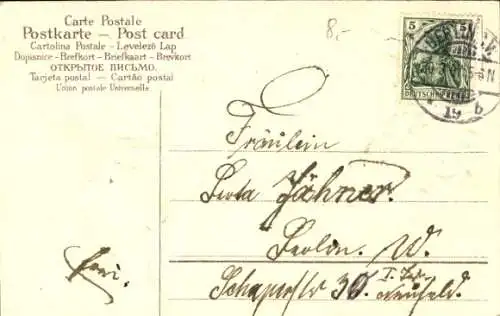 Carte Postale
Postkarte — Post card
Cartolina Postale - Levelező Lap
Dopisnice - Brefkort - Briefkaart - Brevkort
ОТКРЫТОЕ ПИСЬМО.
Tarjeta postal — Cartão postal
Union postale Universelle.
8,-
5
DEUTSCHES REICH
19 b
Fräulein
Jähner.
Berlin. W.
Schaperstr 30. I. Tr.